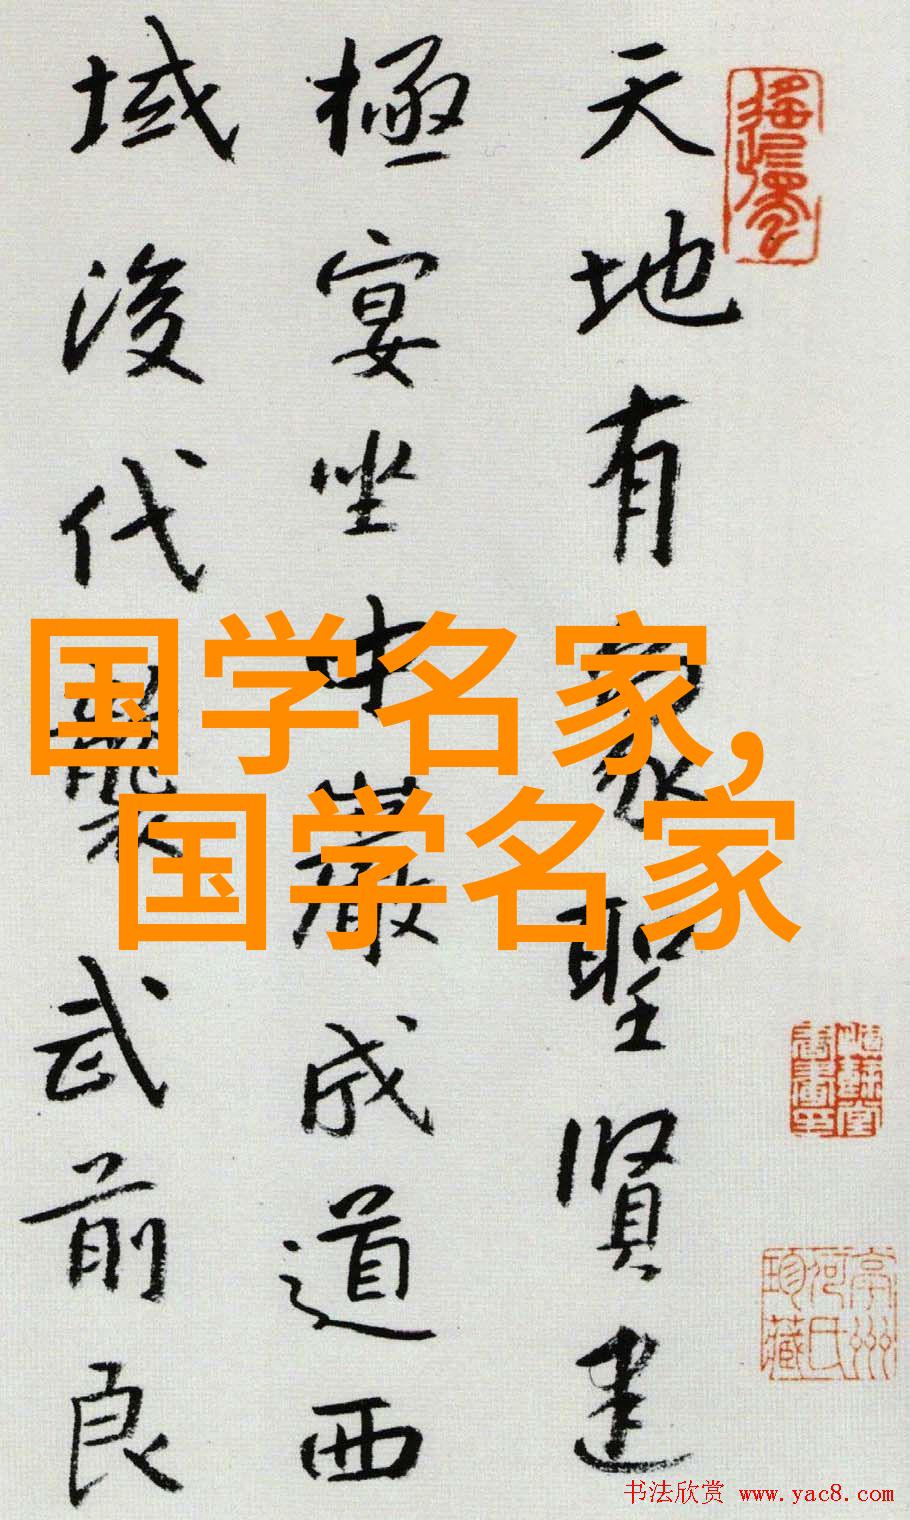 天地有象聖賢建
極宴坐中巖成道西
域後代襲武前良
国学名家,
国学名家
书法欣赏 www.yac8.com